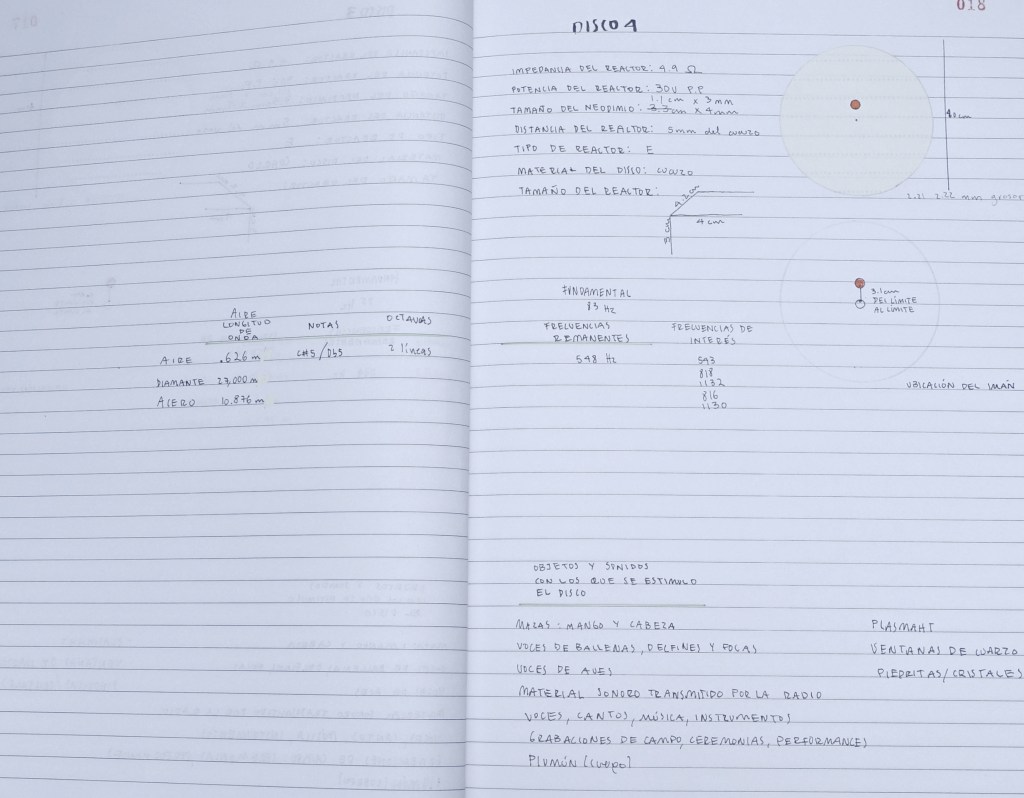 AIRE
LONGITUD
DE
ONDA
NOTAS
OCTAVAS
AIRE .626 m C#5/Db5 2 líneas
DIAMANTE 27,000 m
ACERO 10.876 m
018
DISCO 4
IMPEDANCIA DEL REACTOR: 4.9 Ω
POTENCIA DEL REACTOR: 30V P.P
1.1 cm x 3mm
TAMAÑO DEL NEODIMIO: 3.3cm x 4mm
DISTANCIA DEL REACTOR: 5mm del cuarzo
TIPO DE REACTOR: E
MATERIAL DEL DISCO: CUARZO
TAMAÑO DEL REACTOR:
4 cm
2.22 mm grosor
FUNDAMENTAL
83 Hz
FRECUENCIAS
REMANENTES
548 Hz
FRECUENCIAS DE
INTERÉS
543
818
1132
816
1130
3.1cm
DEL LÍMITE
AL LÍMITE
UBICACIÓN DEL IMÁN
OBJETOS Y SONIDOS
CON LOS QUE SE ESTIMULO
EL DISCO
MAZAS: MANGO Y CABEZA
VOCES DE BALLENAS, DELFINES Y FOCAS
VOCES DE AVES
MATERIAL SONORO TRANSMITIDO POR LA RADIO
VOCES, CANTOS, MÚSICA, INSTRUMENTOS
GRABACIONES DE CAMPO, CEREMONIAS, PERFORMANCES
PLUMÓN (cuerpo)
PLASMAHT
VENTANAS DE CUARZO
PIEDRITAS/CRISTALES